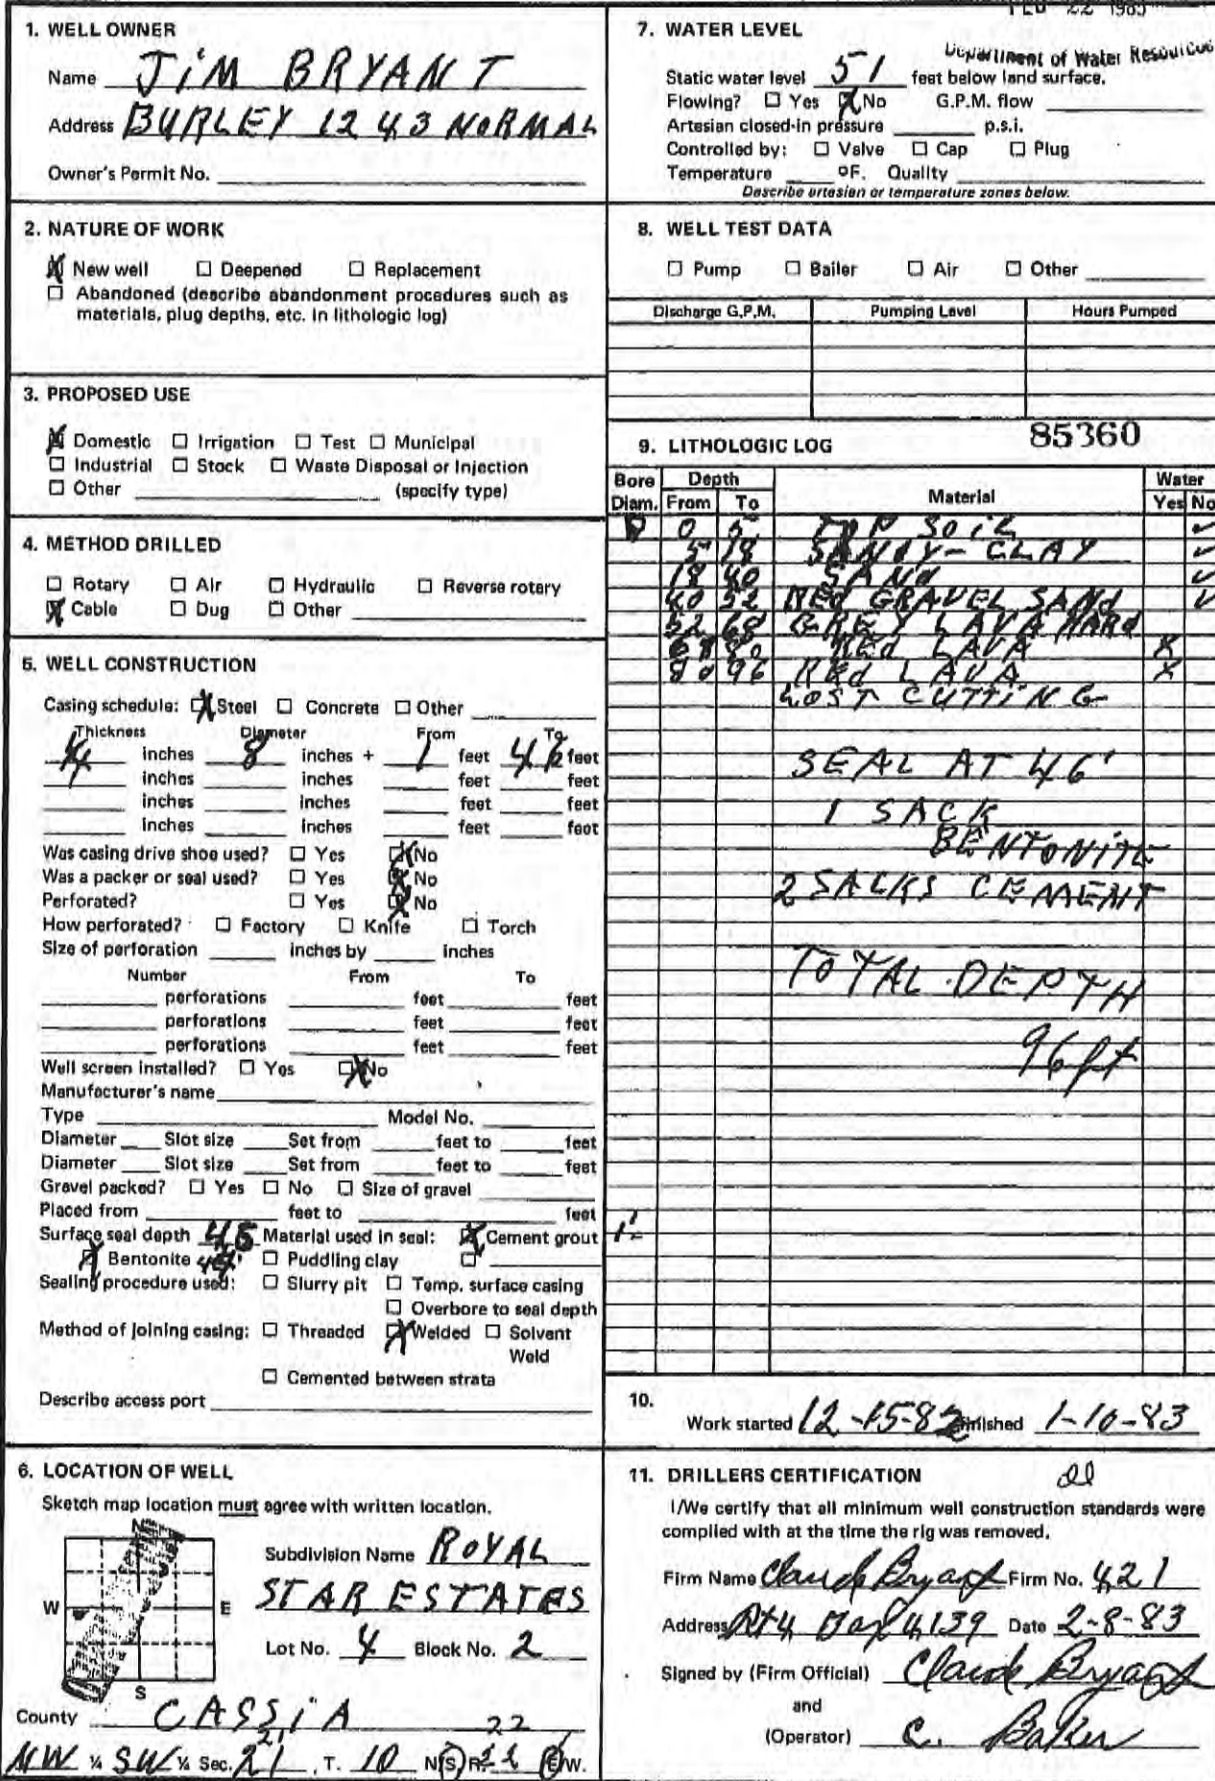 FEB 22 1983
1. WELL OWNER
Name JiM BRYANT
Address BURLEY 1243 NORMAL
Owner's Permit No.
2. NATURE OF WORK
☒ New well ☐ Deepened ☐ Replacement
☐ Abandoned (describe abandonment procedures such as
materials, plug depths, etc. in lithologic log)
3. PROPOSED USE
☒ Domestic ☐ Irrigation ☐ Test ☐ Municipal
☐ Industrial ☐ Stock ☐ Waste Disposal or Injection
☐ Other (specify type)
4. METHOD DRILLED
☐ Rotary ☐ Air ☐ Hydraulic ☐ Reverse rotary
☒ Cable ☐ Dug ☐ Other
5. WELL CONSTRUCTION
Casing schedule: ☒ Steel ☐ Concrete ☐ Other
Thickness Diameter From To
inches 8 inches + 1 feet 46 feet
inches inches feet feet
inches inches feet feet
inches inches feet feet
Was casing drive shoe used? ☐ Yes ☒ No
Was a packer or seal used? ☐ Yes ☒ No
Perforated? ☐ Yes ☒ No
How perforated? ☐ Factory ☐ Knife ☐ Torch
Size of perforation inches by inches
Number From To
perforations feet feet
perforations feet feet
perforations feet feet
Well screen installed? ☐ Yes ☒ No
Manufacturer's name
Type Model No.
Diameter Slot size Set from feet to feet
Diameter Slot size Set from feet to feet
Gravel packed? ☐ Yes ☐ No ☐ Size of gravel
Placed from feet to feet
Surface seal depth Material used in seal: ☒ Cement grout
☒ Bentonite ☐ Puddling clay ☐
Sealing procedure used: ☐ Slurry pit ☐ Temp. surface casing
☐ Overbore to seal depth
Method of joining casing: ☐ Threaded ☒ Welded ☐ Solvent
Weld
☐ Cemented between strata
Describe access port
6. LOCATION OF WELL
Sketch map location must agree with written location.
N
W E
S
Subdivision Name ROYAL
STAR ESTATES
Lot No. 4 Block No. 2
County CASSiA 22
NW ¼ SW ¼ Sec. 21, T. 10 N/S R. 22 E/W.
7. WATER LEVEL
Department of Water Resources
Static water level 51 feet below land surface.
Flowing? ☐ Yes ☒ No G.P.M. flow
Artesian closed-in pressure p.s.i.
Controlled by: ☐ Valve ☐ Cap ☐ Plug
Temperature ºF. Quality
Describe artesian or temperature zones below.
8. WELL TEST DATA
☐ Pump ☐ Bailer ☐ Air ☐ Other
Discharge G.P.M. Pumping Level Hours Pumped
85360
9. LITHOLOGIC LOG
Bore Depth Water
Diam. From To Material Yes No
0 5 TOP SOiL ✓
5 18 SANDY-CLAY ✓
18 40 SANd ✓
40 52 REd GRAVEL SANd ✓
52 68 GREY LAVA HARd
68 80 REd LAVA X
80 96 REd LAVA X
LOST CUTTiNG
SEAL AT 46'
1 SACK
BENTONiTE
2 SACKS CEMENT
TOTAL DEPTH
96 ft
10.
Work started 12-15-82 finished 1-10-83
11. DRILLERS CERTIFICATION
I/We certify that all minimum well construction standards were
complied with at the time the rig was removed.
Firm Name Claude Bryant Firm No. 421
Address Rt 4 Box 4139 Date 2-8-83
Signed by (Firm Official) Claude Bryant
and
(Operator) C. Baker